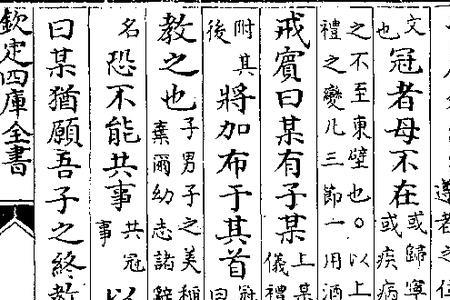 遵者之
文也冠者母不在或歸寧或疾病
之不至東壁也○以上禮之變凡三節一用酒
戒賓曰某有子某上某儀禮
附其後將加布于其首
教之也子男子之美稱棄爾幼志諸辭
名恐不能共事共冠事以
曰某猶願吾子之終教
欽定四庫全書